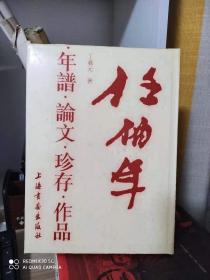 任伯年
丁羲元 著
·年譜·論文·珍存·作品
上海書畫出版社
REDMI NOTE
AI